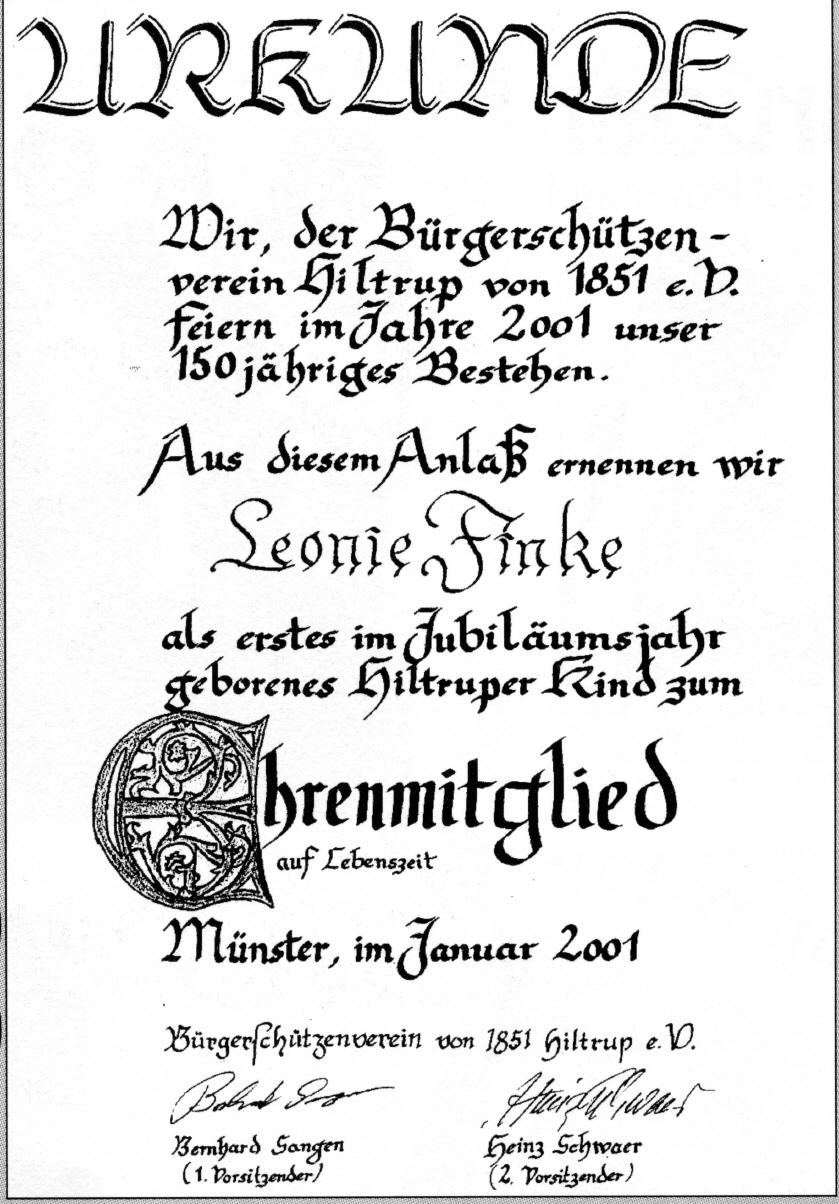 URKUNDE
Wir, der Bürgerschützen-
verein Hiltrup von 1851 e.V.
feiern im Jahre 2001 unser
150jähriges Bestehen.
Aus diesem Anlaß ernennen wir
Leonie Finke
als erstes im Jubiläumsjahr
geborenes Hiltruper Kind zum
Ehrenmitglied
auf Lebenszeit
Münster, im Januar 2001
Bürgerschützenverein von 1851 Hiltrup e.V.
Bernhard Sangen Heinz Schwaer
(1. Vorsitzender) (2. Vorsitzender)